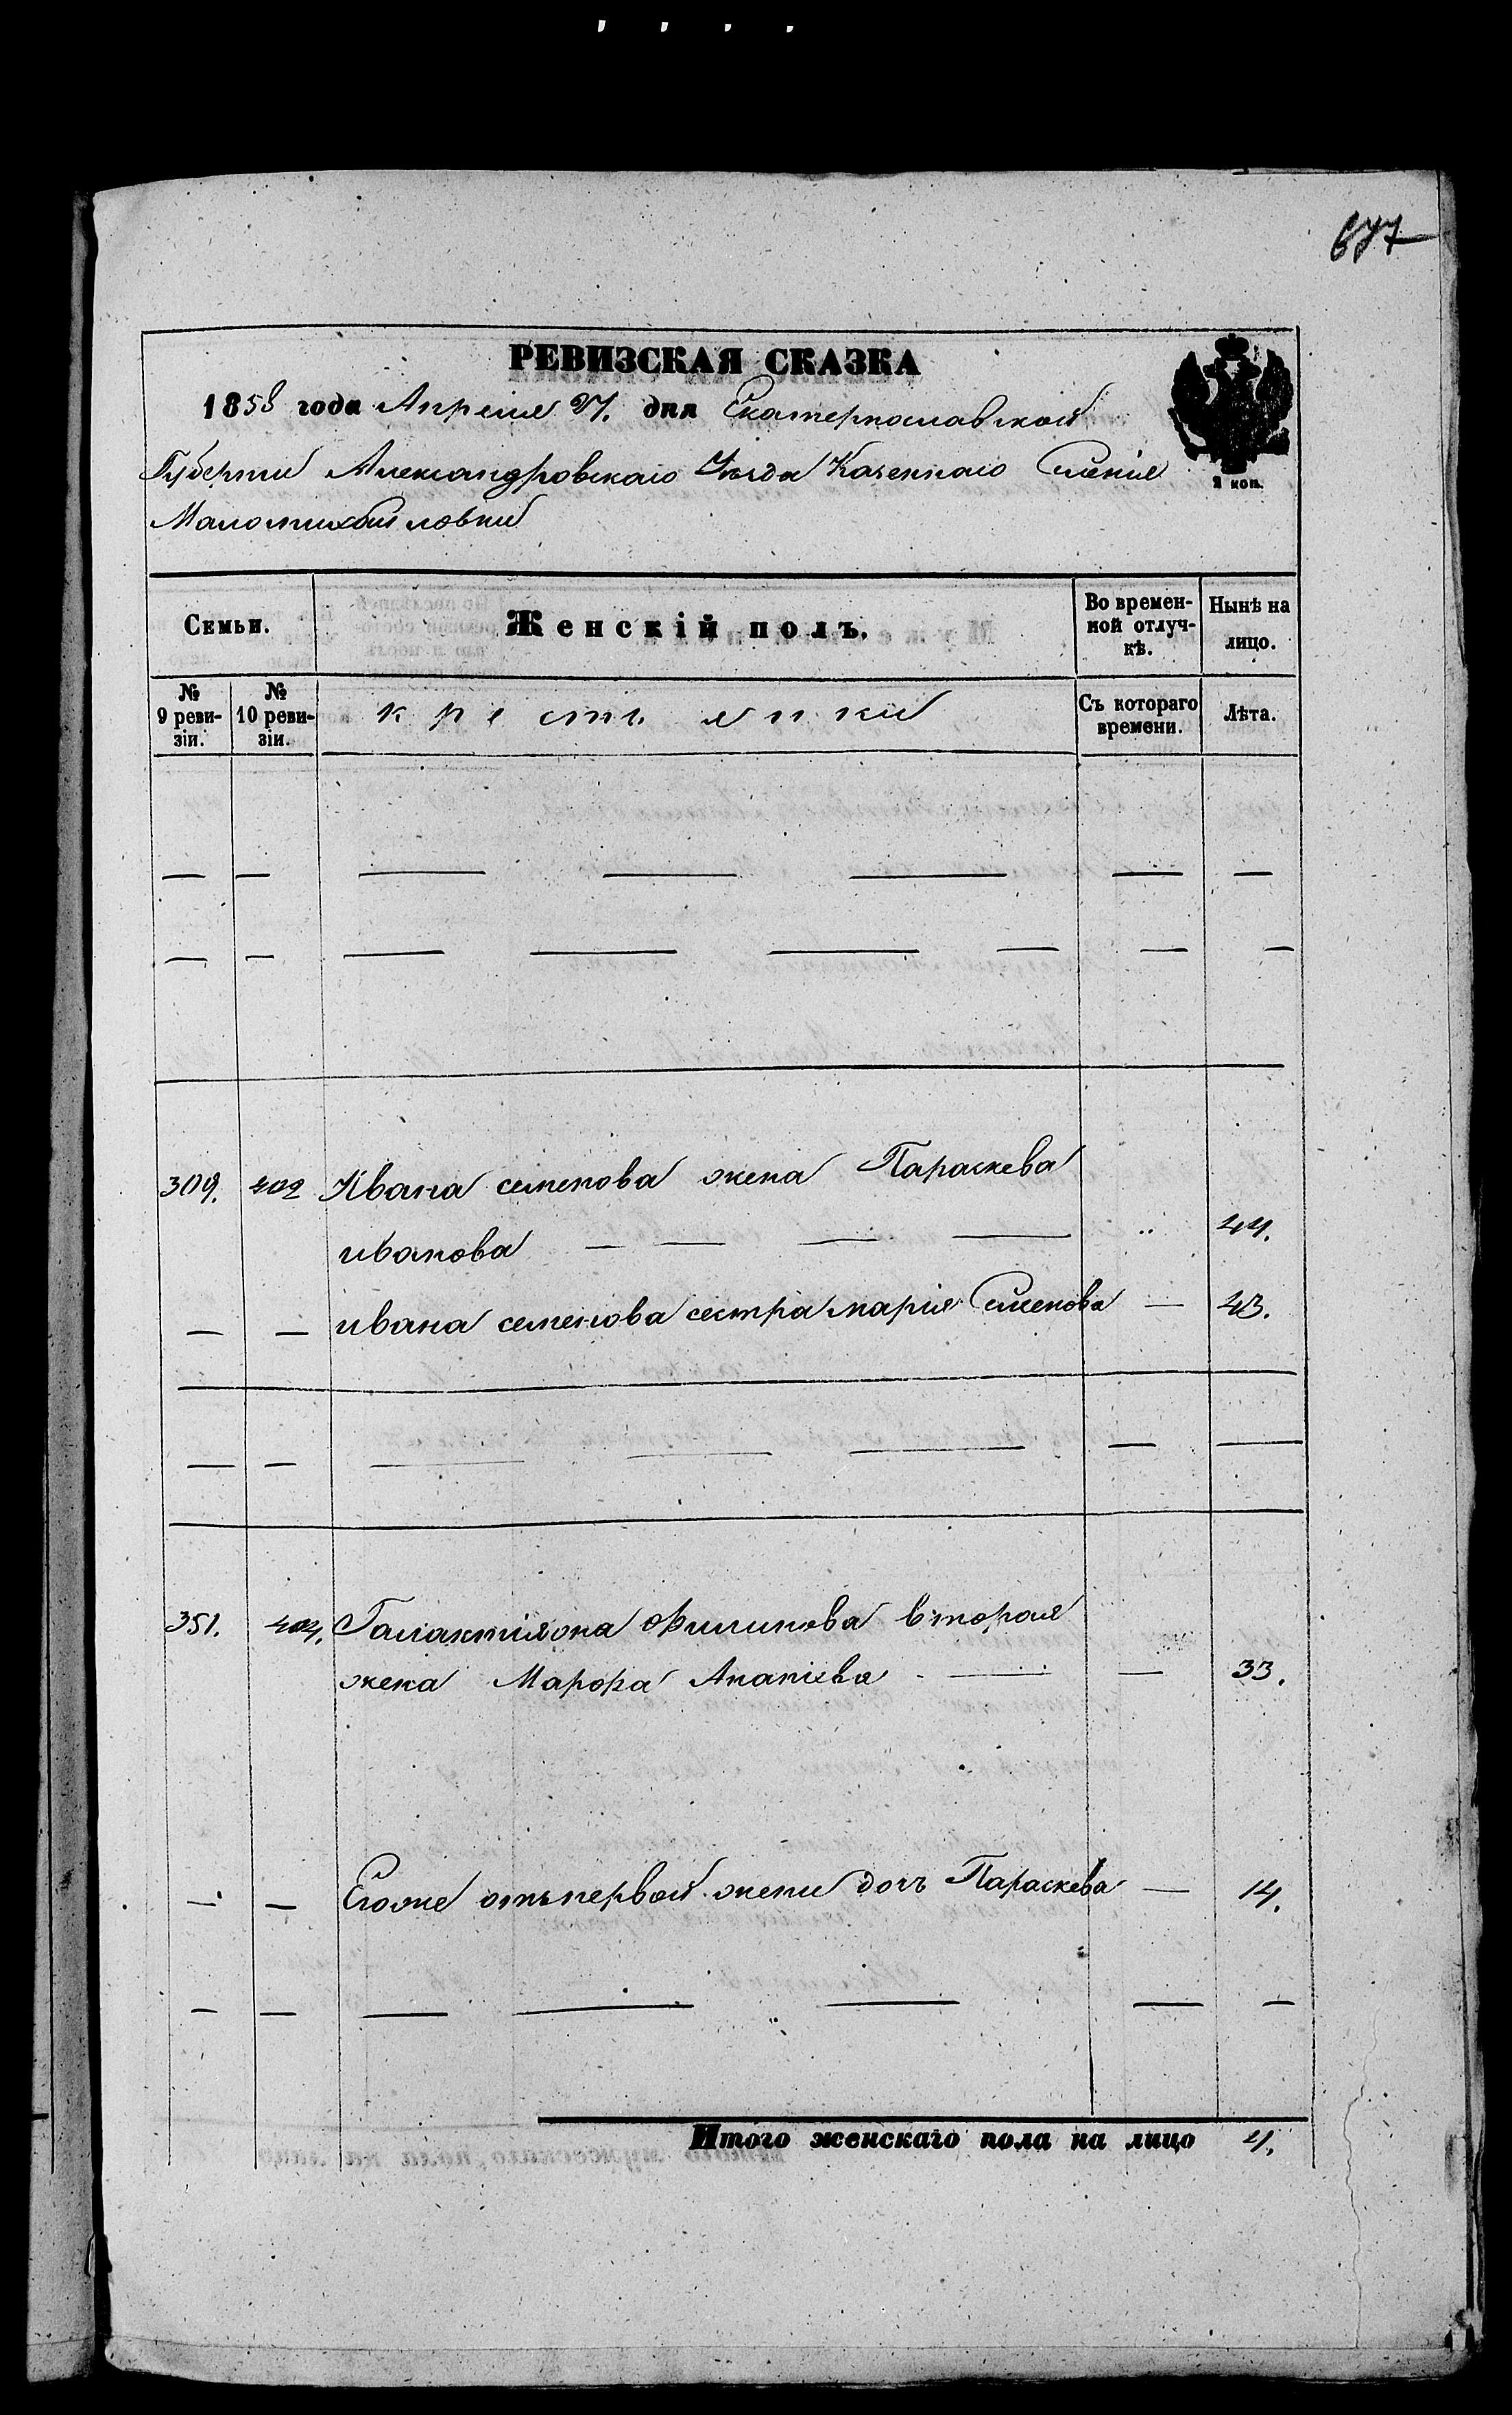 677
РЕВИЗСКАЯ СКАЗКА
1858 года Апреля 27. дня Екатеринославской
Губернии Александровскаго Уезда Казеннаго Селенія
Маломихайловки
2 коп.
Семьи. Женскій полъ. Во времен-
ной отлуч-
кѣ. Нынѣ на
лицо.
№
9 реви-
зіи. №
10 реви-
зіи. крестьянки Съ котораго
времени. Лѣта.
— — — — — — —
— — — — — — — —
309. 402 Ивана семенова жена Параскева
иванова — — — — " 44.
— — ивана семенова сестра марія Семенова — 43.
— — — — — — —
351. 404. Галактиона Филипова вторая
жена Марфа Ананіева — — 33.
— — Егоже отъ первой жены дочь Параскева — 14.
— — — — — — —
Итого женскаго пола на лицо 4.